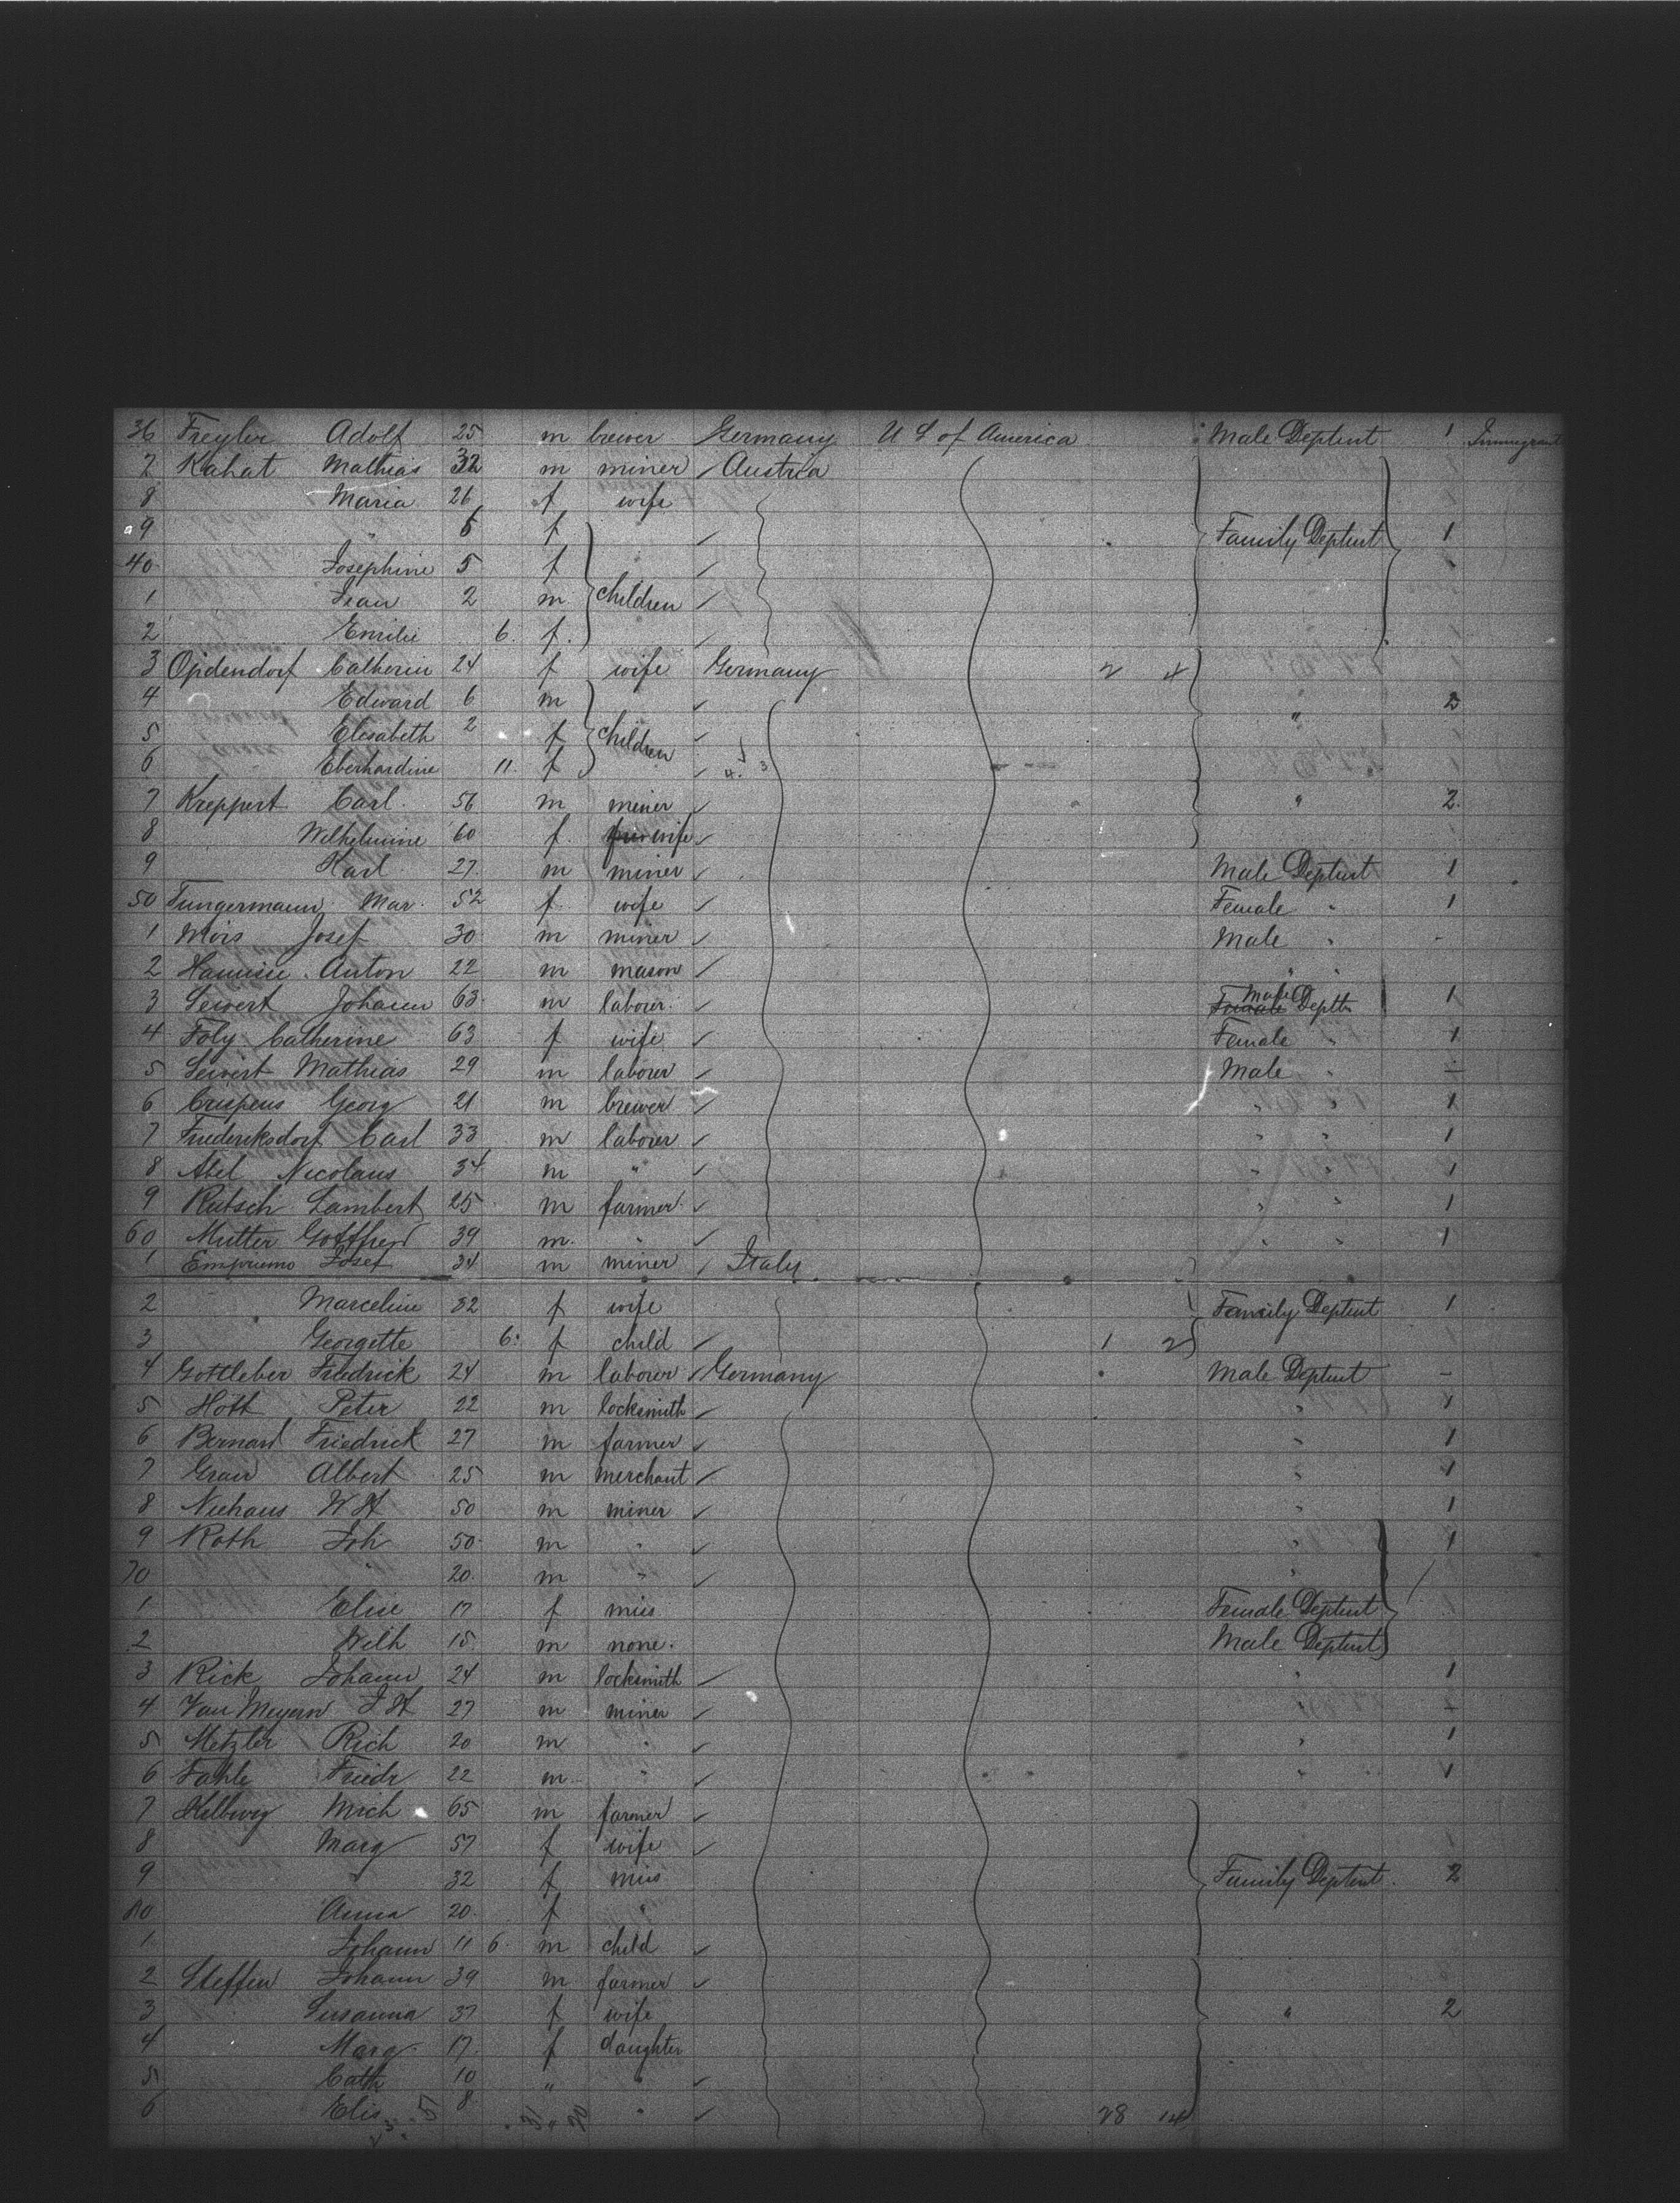 36 Freyler Adolf 25 m brewer Germany U S of America Male Deptmt 1 Immigrant
7 Kahat Mathias 32 m miner Austria
8 Maria 26 f wife
9 " 6 f Family Deptmt 1
40 Josephine 5 f
1 Jean 2 m children
2 Emilie 6 f
3 Opdendorf Catherin 24 f wife Germany 2 4
4 Edward 6 m " 2
5 Elisabeth 2 f children
6 Eberhardine 11 f 4 3
7 Kreppert Carl 56 m miner " 2
8 Wilhelmine 60 f wife
9 Karl 27 m miner Male Deptmt 1
50 Tungermann Mar. 52 f wife Female " 1
1 Mois Josef 30 m miner Male " -
2 Anton 22 m mason " "
3 Seivert Johann 63 m laborer Female Male Deptm 1
4 Foly Catherine 63 f wife Female " 1
5 Seivert Mathias 29 m laborer Male "
6 Crispens Georg 21 m brewer " " 1
7 Friedericksdorf Carl 33 m laborer " " 1
8 Abel Nicolaus 34 m " " " 1
9 Rutsch Lambert 25 m farmer " " 1
60 Mutter Gottfried 39 m " " " 1
1 Josef 34 m miner Italy
2 Marceline 32 f wife Family Deptmt 1
3 Georgette 6 f child 1 2
4 Gottleber Friedrick 24 m laborer Germany Male Deptmt -
5 Hott Peter 22 m locksmith " 1
6 Bernard Friedrick 27 m farmer " 1
7 Grau Albert 25 m merchant " 1
8 Niehaus W H 50 m miner " 1
9 Roth Joh 50 m " " 1
70 " 20 m " "
1 Elise 17 f miss Female Deptmt
2 Wilh 15 m none. Male Deptmt
3 Rick Johann 24 m locksmith " 1
4 Van Meyern J H 27 m miner "
5 Metzler Rich 20 m " " 1
6 Fahle Friedr 22 m " " 1
7 Hellwig Mich 65 m farmer
8 Marg 57 f wife
9 " 32 f miss Family Deptmt. 2
80 Anna 20 f "
1 Johann 11 6 m child
2 Steffen Johann 39 m farmer
3 Susanna 37 f wife " 2
4 Marg 17 f daughter
5 Cath 10 " "
6 Elis 8 " " 28 14